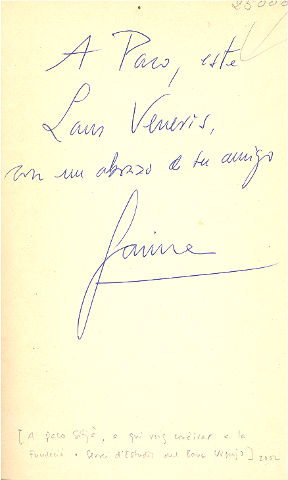 25000
A Paco, este
Laus Veneris,
con un abrazo de tu amigo
Jaime
[A Paco Sitjà, a qui vaig conèixer a la
Fundació i Servei d'Estudis del Banc Urquijo] 2002